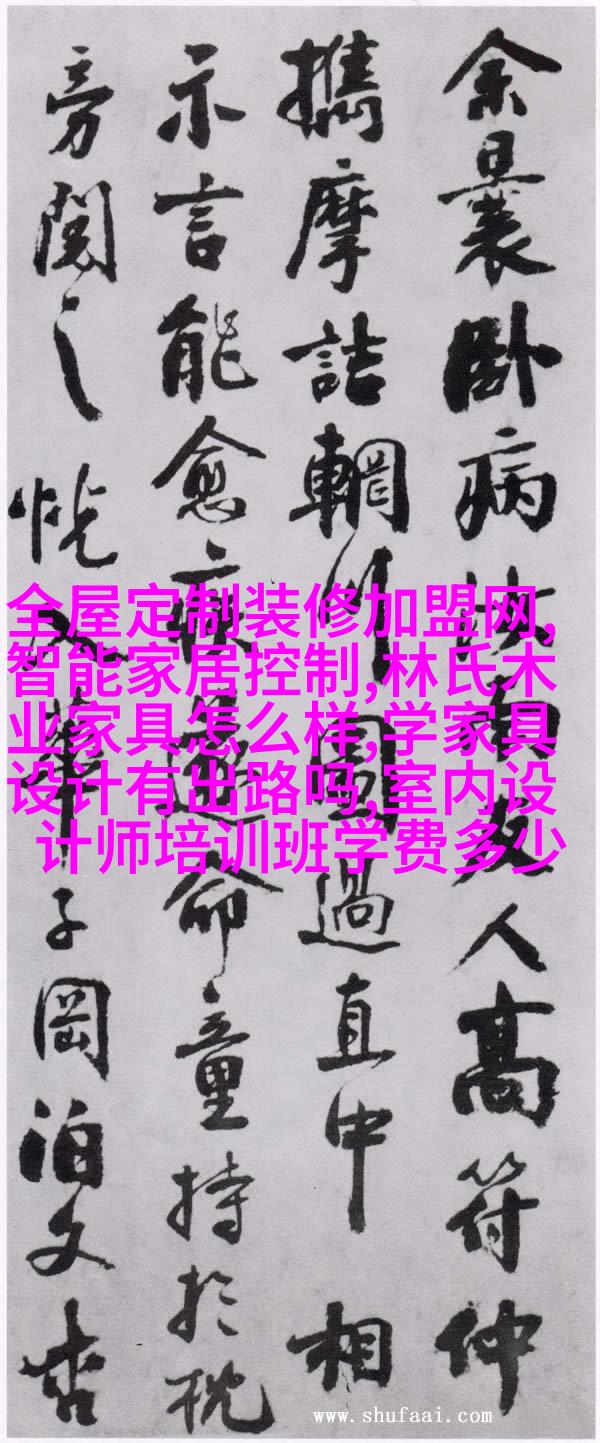 余曩卧病汝南友人高符仲
攜摩詰輞川圖過直中相
示言能愈疾遂命童持於枕
旁閱之恍入華子岡泊文杏
全屋定制装修加盟网,
智能家居控制,林氏木
业家具怎么样,学家具
设计有出路吗,室内设
计师培训班学费多少
www.shufaai.com